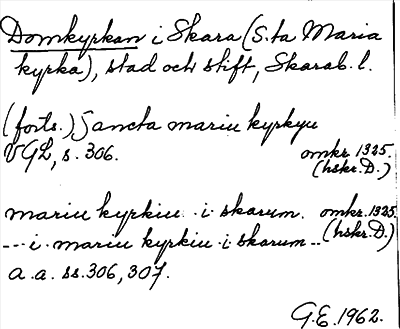 Domkyrkan i Skara (S:ta Maria
kyrka), stad och stift, Skarab. l.
(forts.) Sancta mariu kyrkyu
VGL, s. 306. omkr. 1325.
(hskr. D.)
mariu kyrkiu · i · skarum. omkr. 1325.
--- i · mariu kyrkiu · i skarum -- (hskr. D.)
a. a. ss. 306, 307.
G.E. 1962.